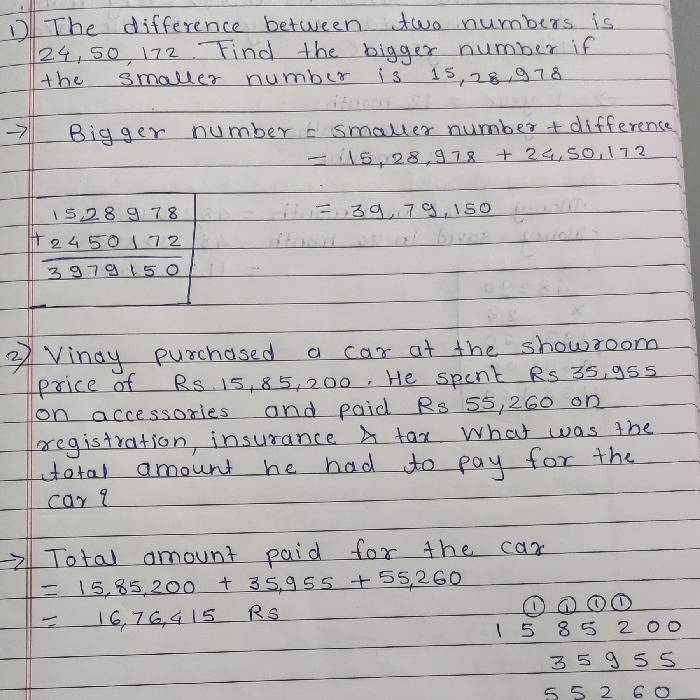 1) The difference between two numbers is
24,50,172. Find the bigger number if
the smaller number is 15,28,978
→ Bigger number = smaller number + difference
= 15,28,978 + 24,50,172
= 39,79,150
15,28978
+2450172
3979150
2) Vinay purchased a car at the showroom
price of Rs. 15,85,200. He spent Rs 35,955
on accessories and paid Rs 55,260 on
registration, insurance & tax What was the
total amount he had to pay for the
car?
→ Total amount paid for the car
= 15,85,200 + 35,955 + 55,260
= 16,76,415 Rs
1 1 1 1
1585200
35955
55260